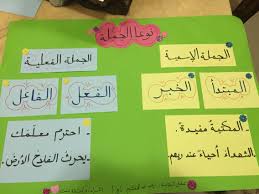 نوعا الجملة
الجملة الاسمية
الجملة الفعلية
المبتدأ
الخبر
الفعل
الفاعل
المكتبة مفيدة.
الشهداء أحياء عند ربهم
احترم معلمك.
يحرث الفلاح الأرض.